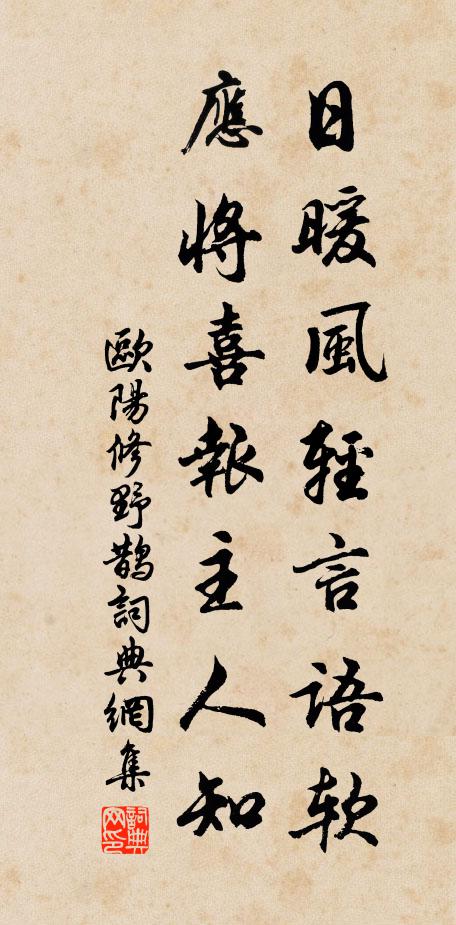 日暖風輕言語軟
應將喜報主人知
歐陽修野鵲詞典網集
詞典網印